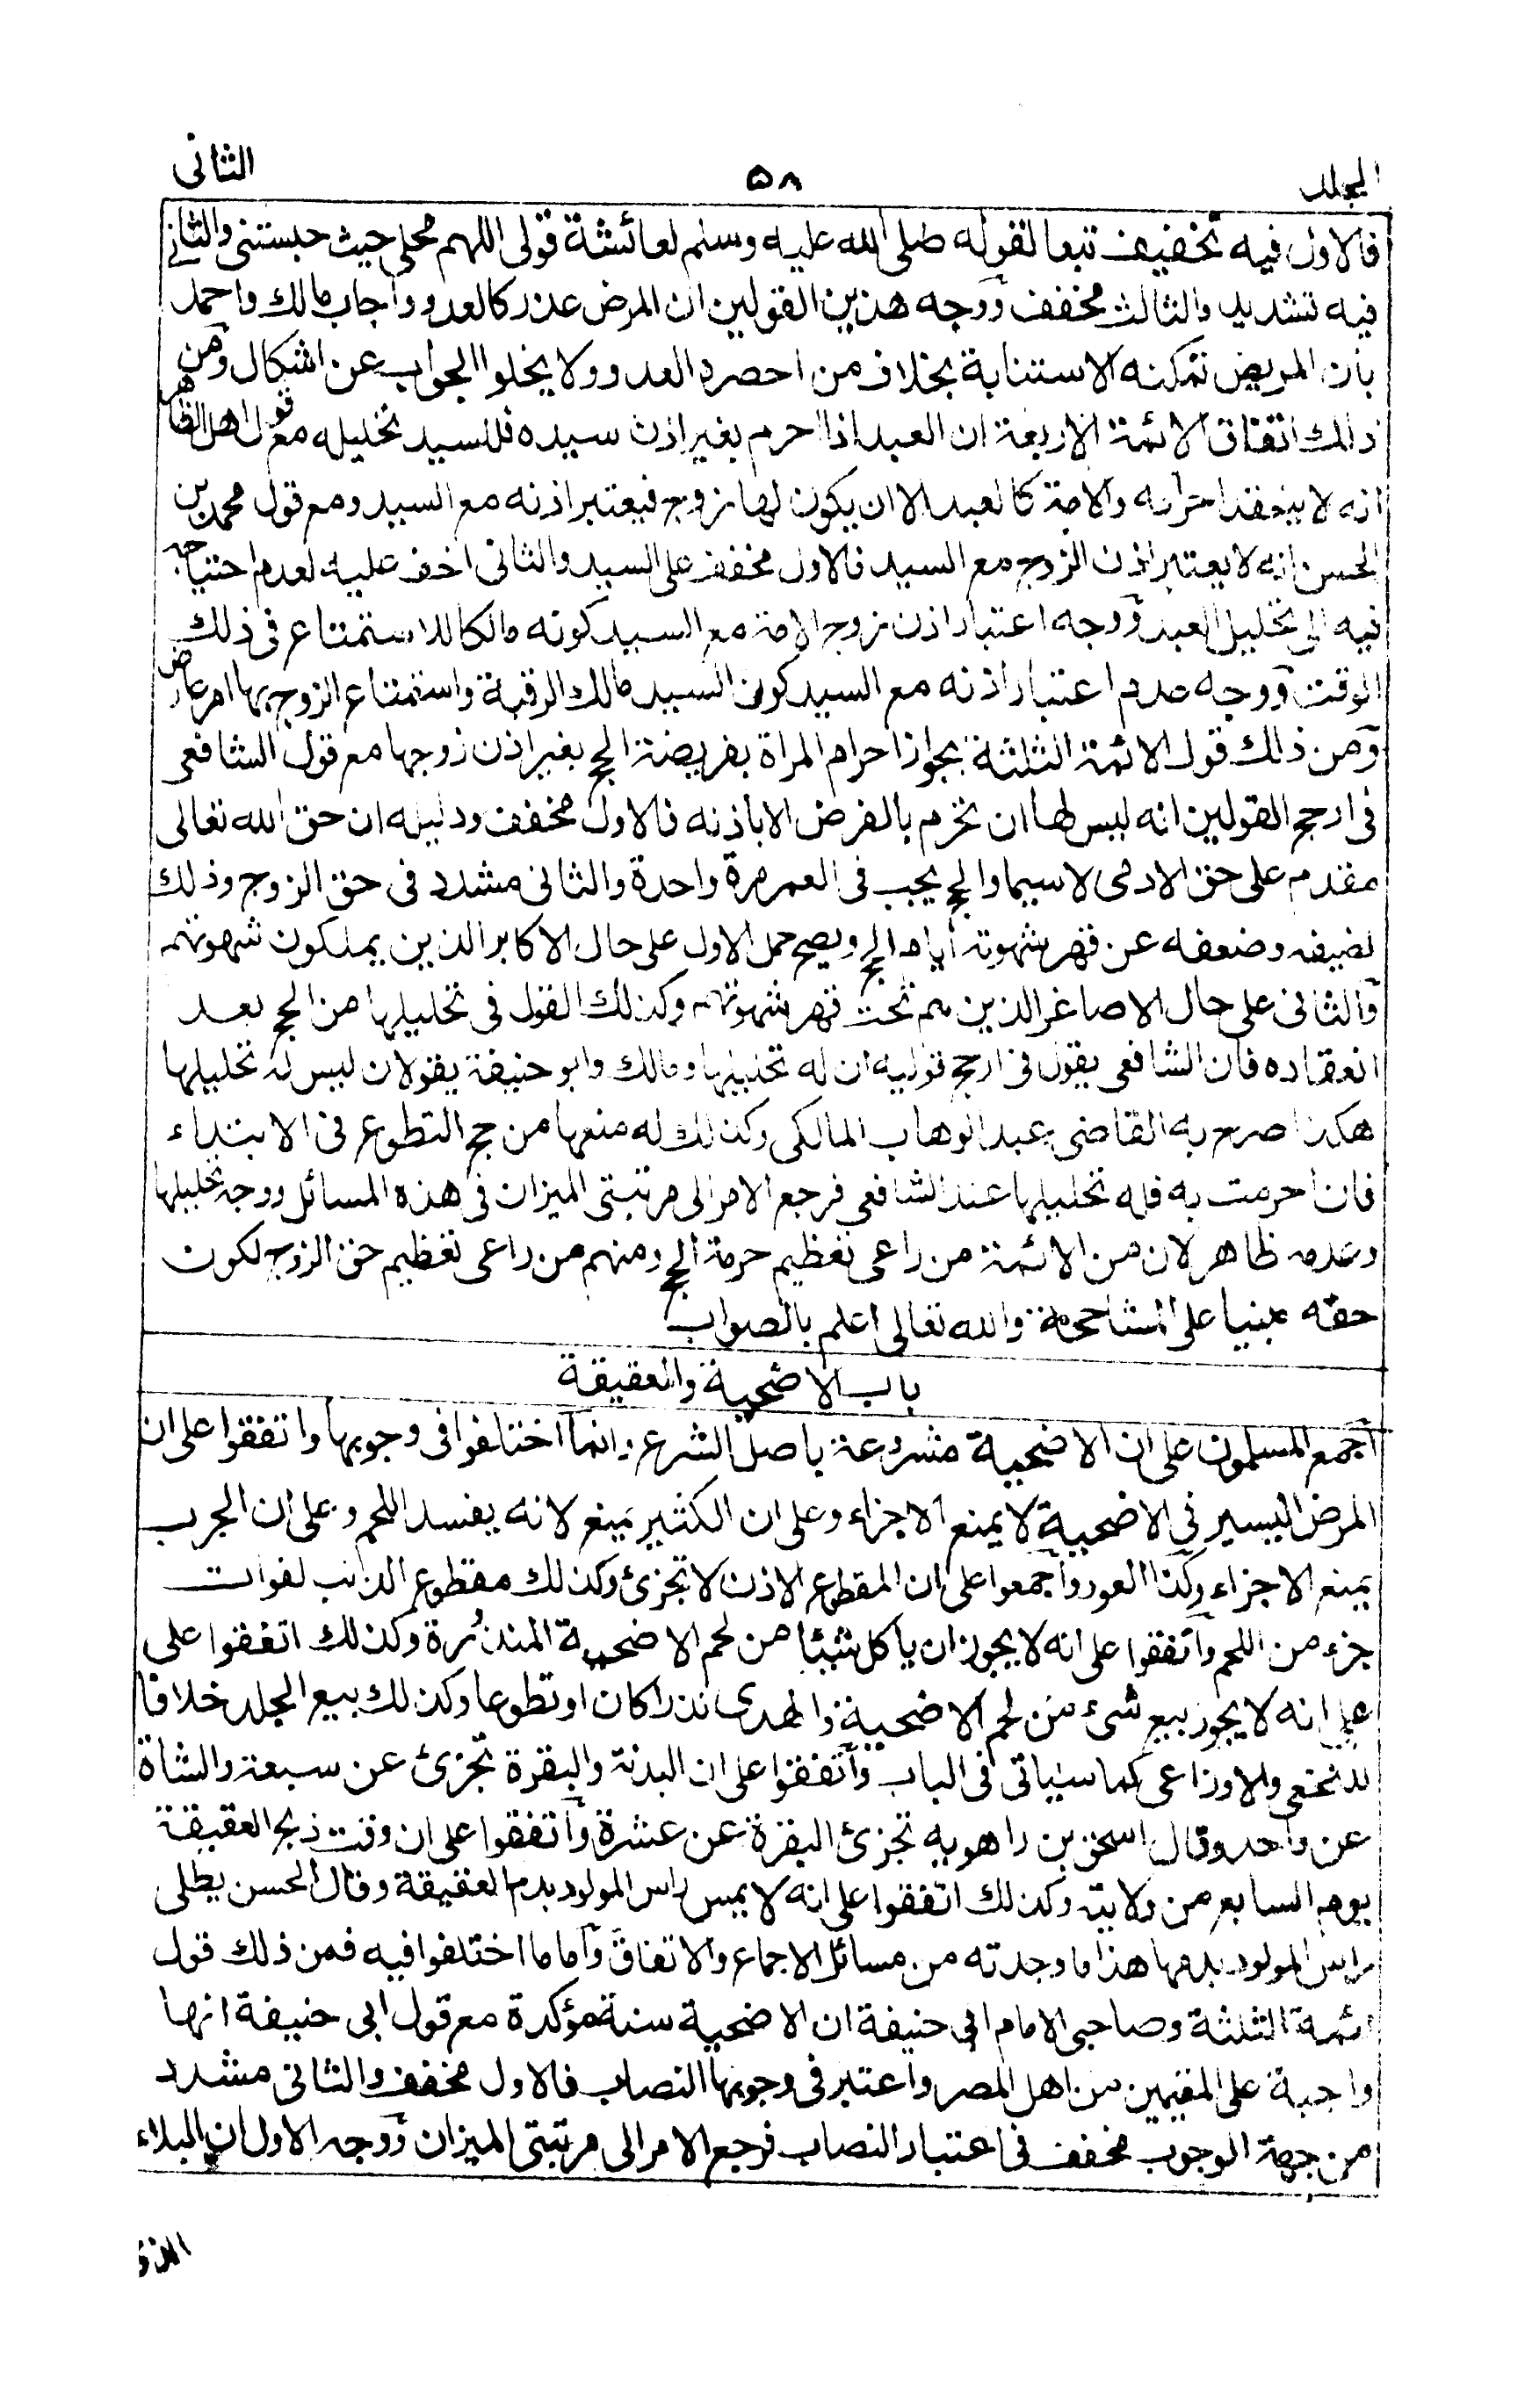 المجلد
٥٨
الثانى
فالاول فيه تخفيف تبعا لقوله صلى الله عليه وسلم لعائشة قولى اللهم محلى حيث حبستنى والثانى
فيه تشديد والثالث مخفف ووجه هذين القولين ان المرض عذر كالعدو واجاب مالك واحمد
بان المريض تمكنه الاستنابة بخلاف من احصره العدو ولا يخلوا الجواب عن اشكال ومن
ذلك اتفاق الائمة الاربعة ان العبد اذا احرم بغير اذن سيده فللسيد تحليله مع قول اهل الظاهر
انه لا ينعقد احرامه والامة كالعبد الا ان يكون لها زوج فيعتبر اذنه مع السيد ومع قول محمد بن
الحسن انه لا يعتبر اذن الزوج مع السيد فالاول مخفف على السيد والثانى اخف عليه لعدم احتياجه
فيه الى تحليل العبد ووجه اعتبار اذن زوج الامة مع السيد كونه مالكا للاستمتاع فى ذلك
الوقت ووجه عدم اعتبار اذنه مع السيد كون السيد مالك الرقبة واستمتاع الزوج بها امر عارض
ومن ذلك قول الائمة الثلثة بجواز احرام المراة بفريضة الحج بغير اذن زوجها مع قول الشافعى
فى ارجح القولين انه ليس لها ان تحرم بالفرض الا باذنه فالاول مخفف ودليله ان حق الله تعالى
مقدم على حق الادمى لا سيما والحج يجب فى العمر مرة واحدة والثانى مشدد فى حق الزوج وذلك
لضيقه وضعفه عن قهر شهوته ايام الحج ويصح حمل الاول على حال الاكابر الذين يملكون شهوتهم
والثانى على حال الاصاغر الذين هم تحت قهر شهوتهم وكذلك القول فى تحليلها من الحج بعد
انعقاده فان الشافعى يقول فى ارجح قوليه ان له تحليلها ومالك وابو حنيفة يقولان ليس له تحليلها
هكذا صرح به القاضى عبد الوهاب المالكى وكذلك له منعها من حج التطوع فى الابتداء
فان احرمت به فله تحليلها عند الشافعى فرجع الامر الى مرتبتى الميزان فى هذه المسائل ووجه تحليلها
وعدمه ظاهر لان من الائمة من راعى تعظيم حرمة الحج ومنهم من راعى تعظيم حق الزوج لكون
حقه مبنيا على المشاححة والله تعالى اعلم بالصواب
باب الاضحية والعقيقة
اجمع المسلمون على ان الاضحية مشروعة باصل الشرع وانما اختلفوا فى وجوبها واتفقوا على ان
المرض اليسير فى الاضحية لا يمنع الاجزاء وعلى ان الكثير يمنع لانه يفسد اللحم وعلى ان الجرب
يمنع الاجزاء وكذا العور واجمعوا على ان المقطوع الاذن لا تجزئ وكذلك مقطوع الذنب لفوات
جزء من اللحم واتفقوا على انه لا يجوز ان ياكل شيئا من لحم الاضحية المنذورة وكذلك اتفقوا على
على انه لا يجوز بيع شىء من لحم الاضحية والهدى نذرا كان او تطوعا وكذلك بيع الجلد خلافا
للنخعى والاوزاعى كما سياتى فى الباب واتفقوا على ان البدنة والبقرة تجزئ عن سبعة والشاة
عن واحد وقال اسحق بن راهويه تجزئ البقرة عن عشرة واتفقوا على ان وقت ذبح العقيقة
يوم السابع من ولادته وكذلك اتفقوا على انه لا يمس راس المولود بدم العقيقة وقال الحسن يطلى
راس المولود بدمها هذا ما وجدته من مسائل الاجماع والاتفاق واما ما اختلفوا فيه فمن ذلك قول
ائمة الثلثة وصاحبى الامام ابى حنيفة ان الاضحية سنة مؤكدة مع قول ابى حنيفة انها
واجبة على المقيمين من اهل المصر واعتبر فى وجوبها النصاب فالاول مخفف والثانى مشدد
من جهة الوجوب مخفف فى اعتبار النصاب فرجع الامر الى مرتبتى الميزان ووجه الاول ان البلاء
الذى